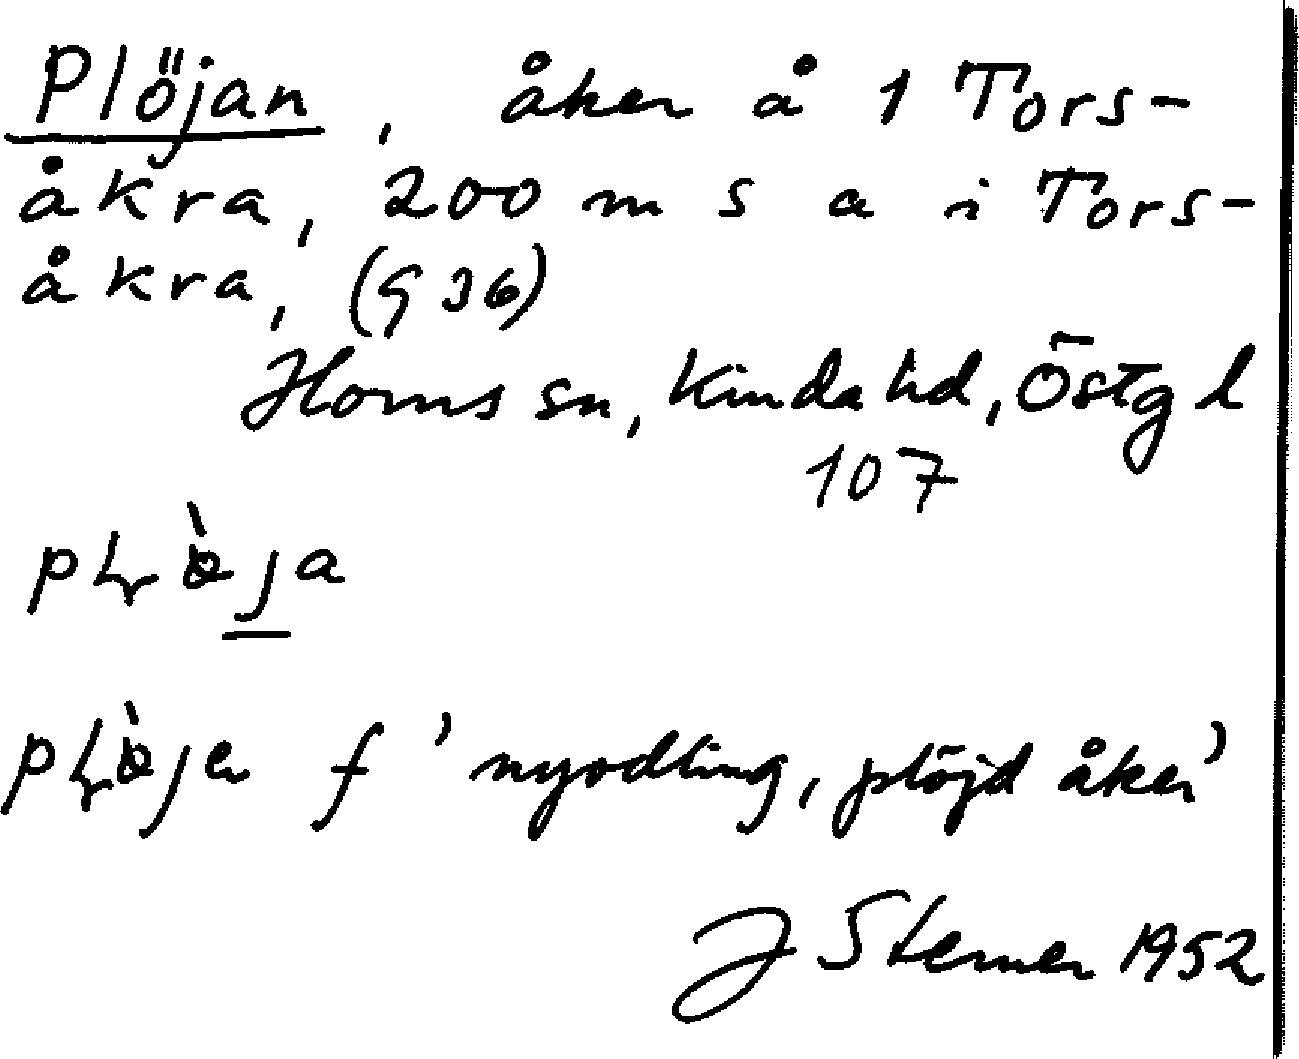 Plöjan, åker å 1 Tors-
åkra, 200 m S a i Tors-
åkra, (G 36)
Horns sn, Kinda hd, Östg l
107
pḷø̀ja
pḷø̀jer f 'nyodling, plöjd åker'
J Sterner 1952